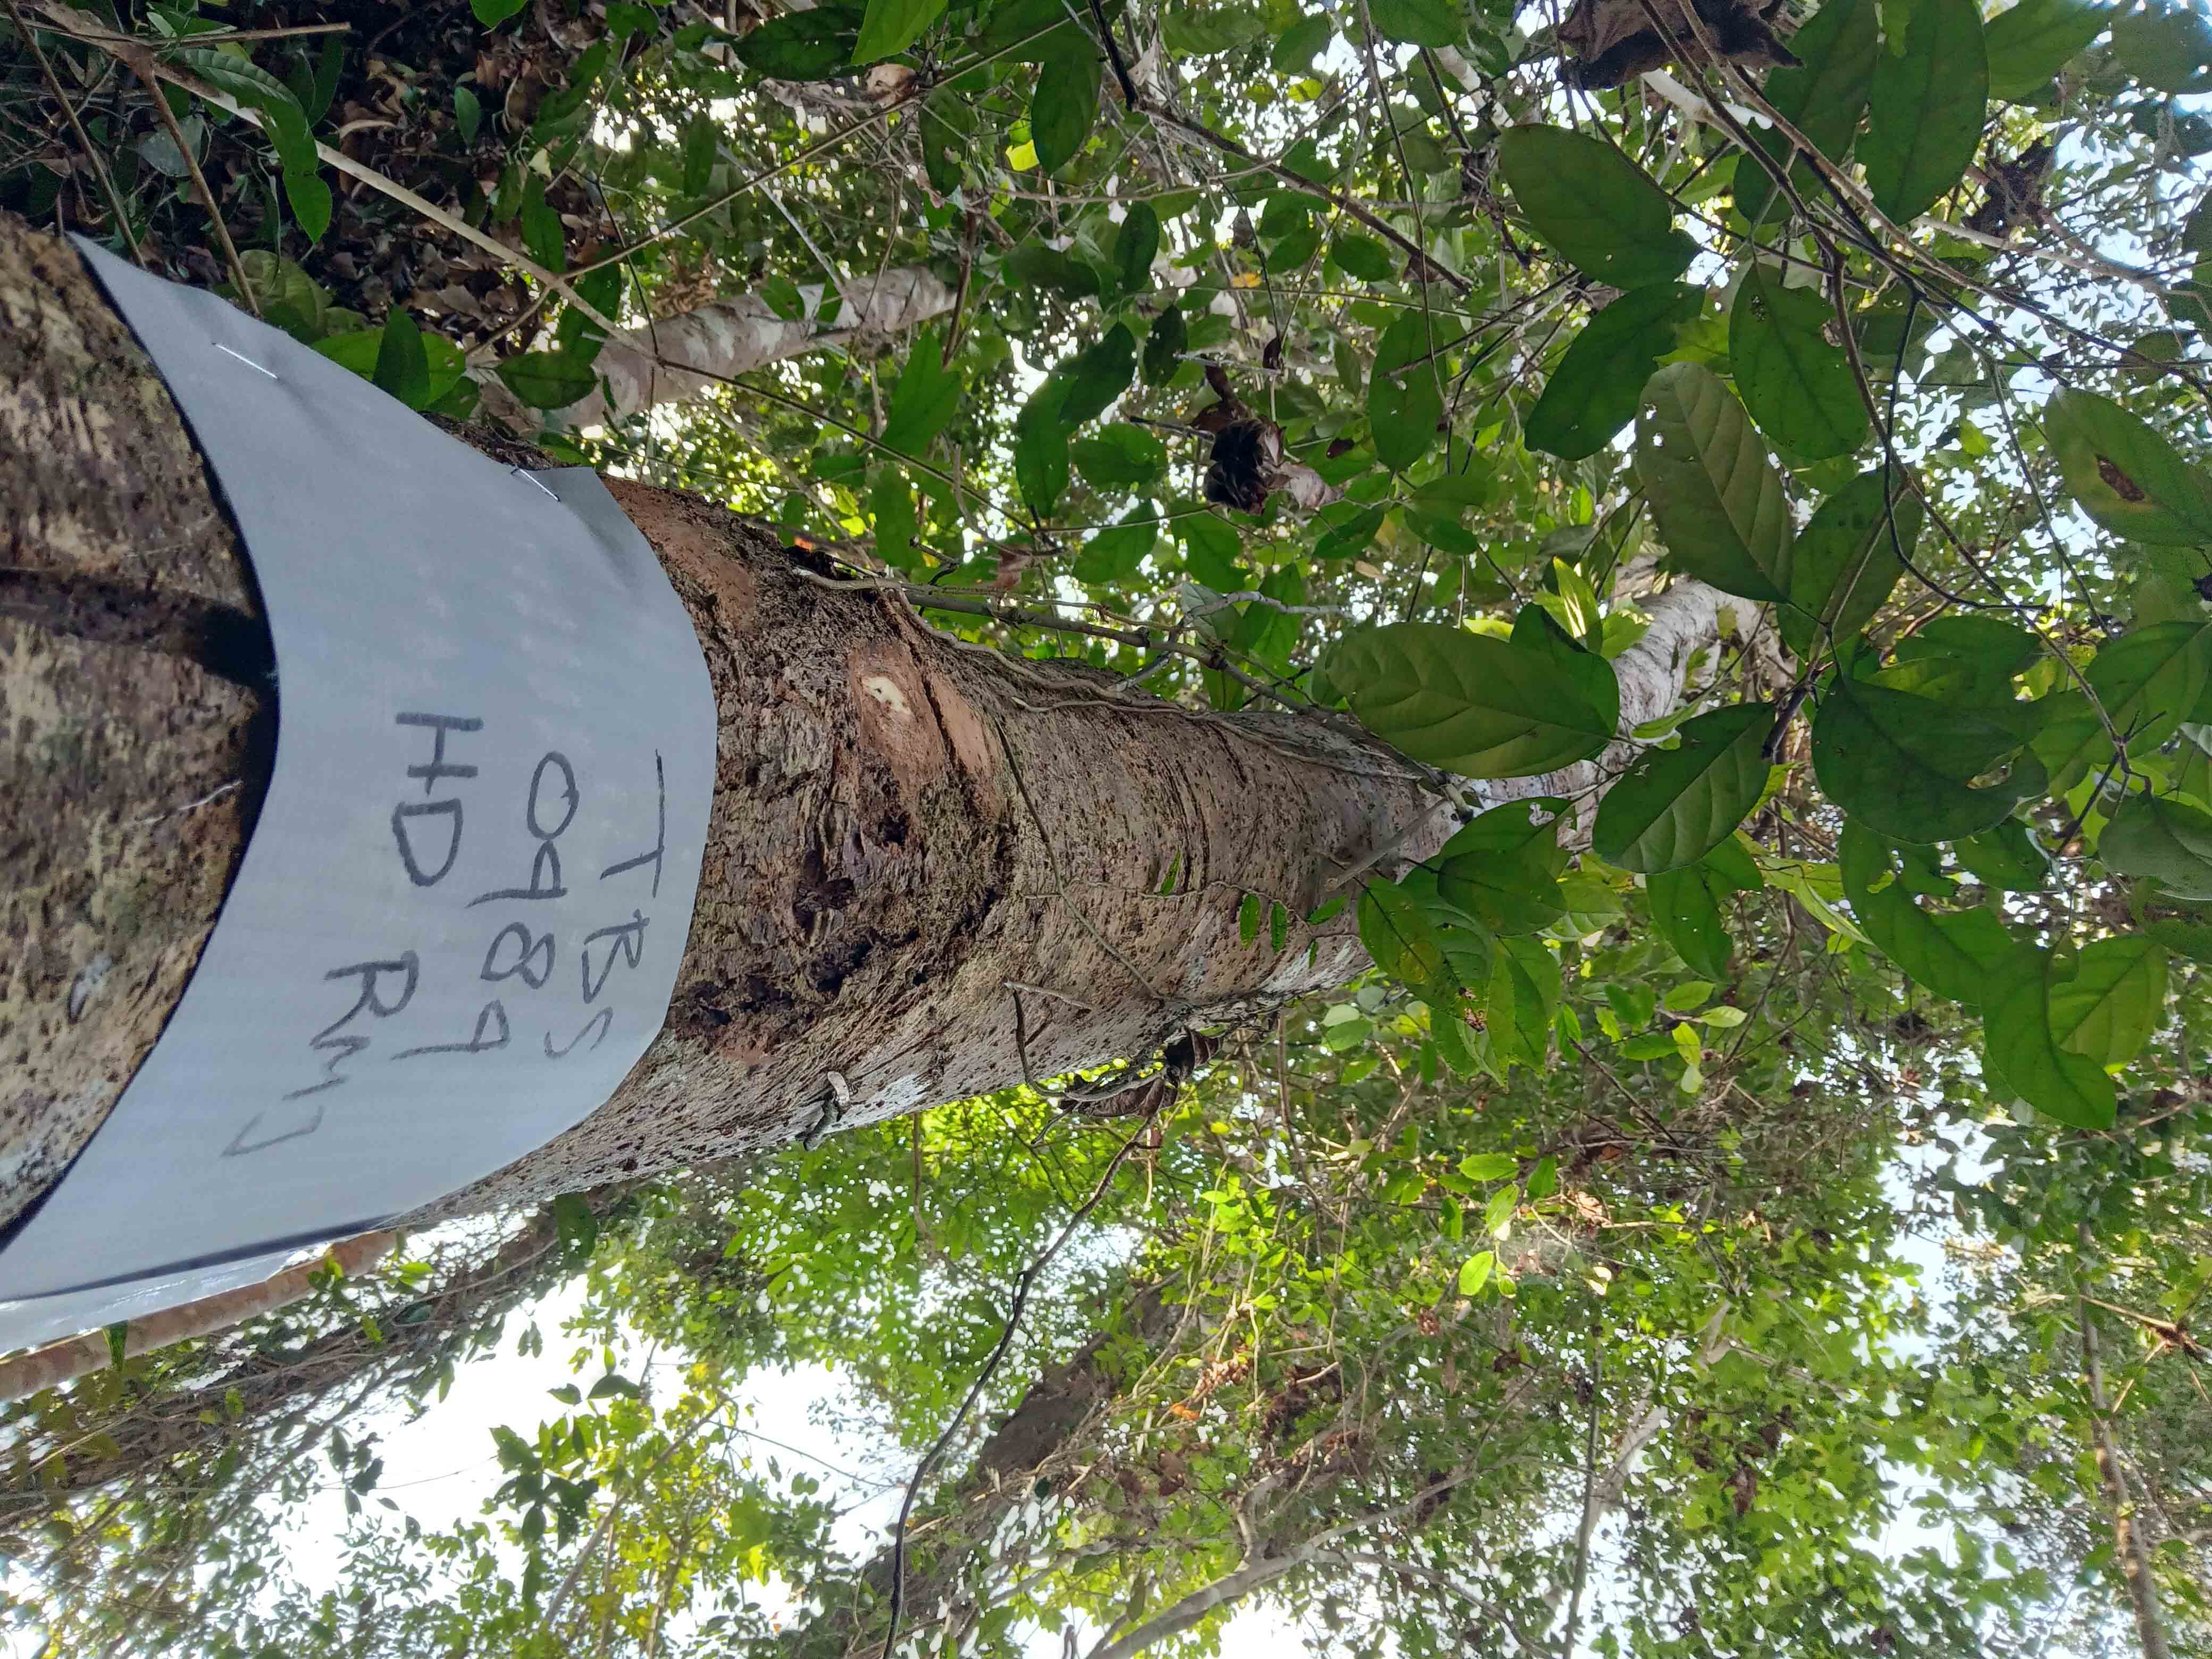 TBS
0989
HD RMJ